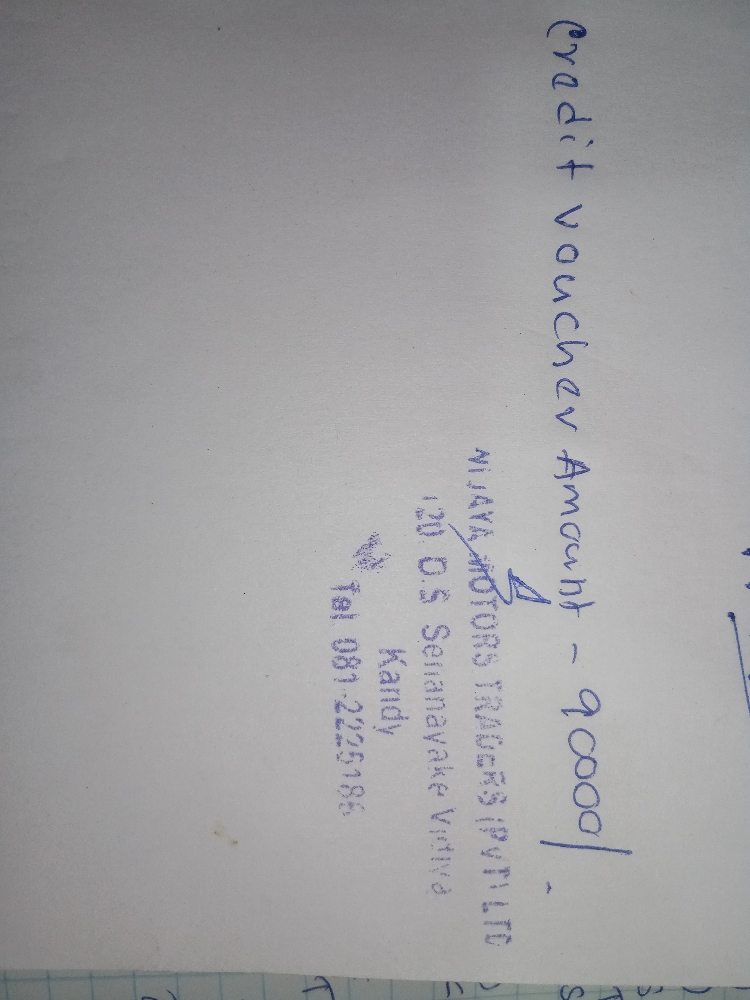 Cradit voucher Amount - 90000/-
WIJAYA MOTORS TRADERS (PVT) LTD
120 D.S Senanayake Vidiya
Kandy
Tel 081-2225186